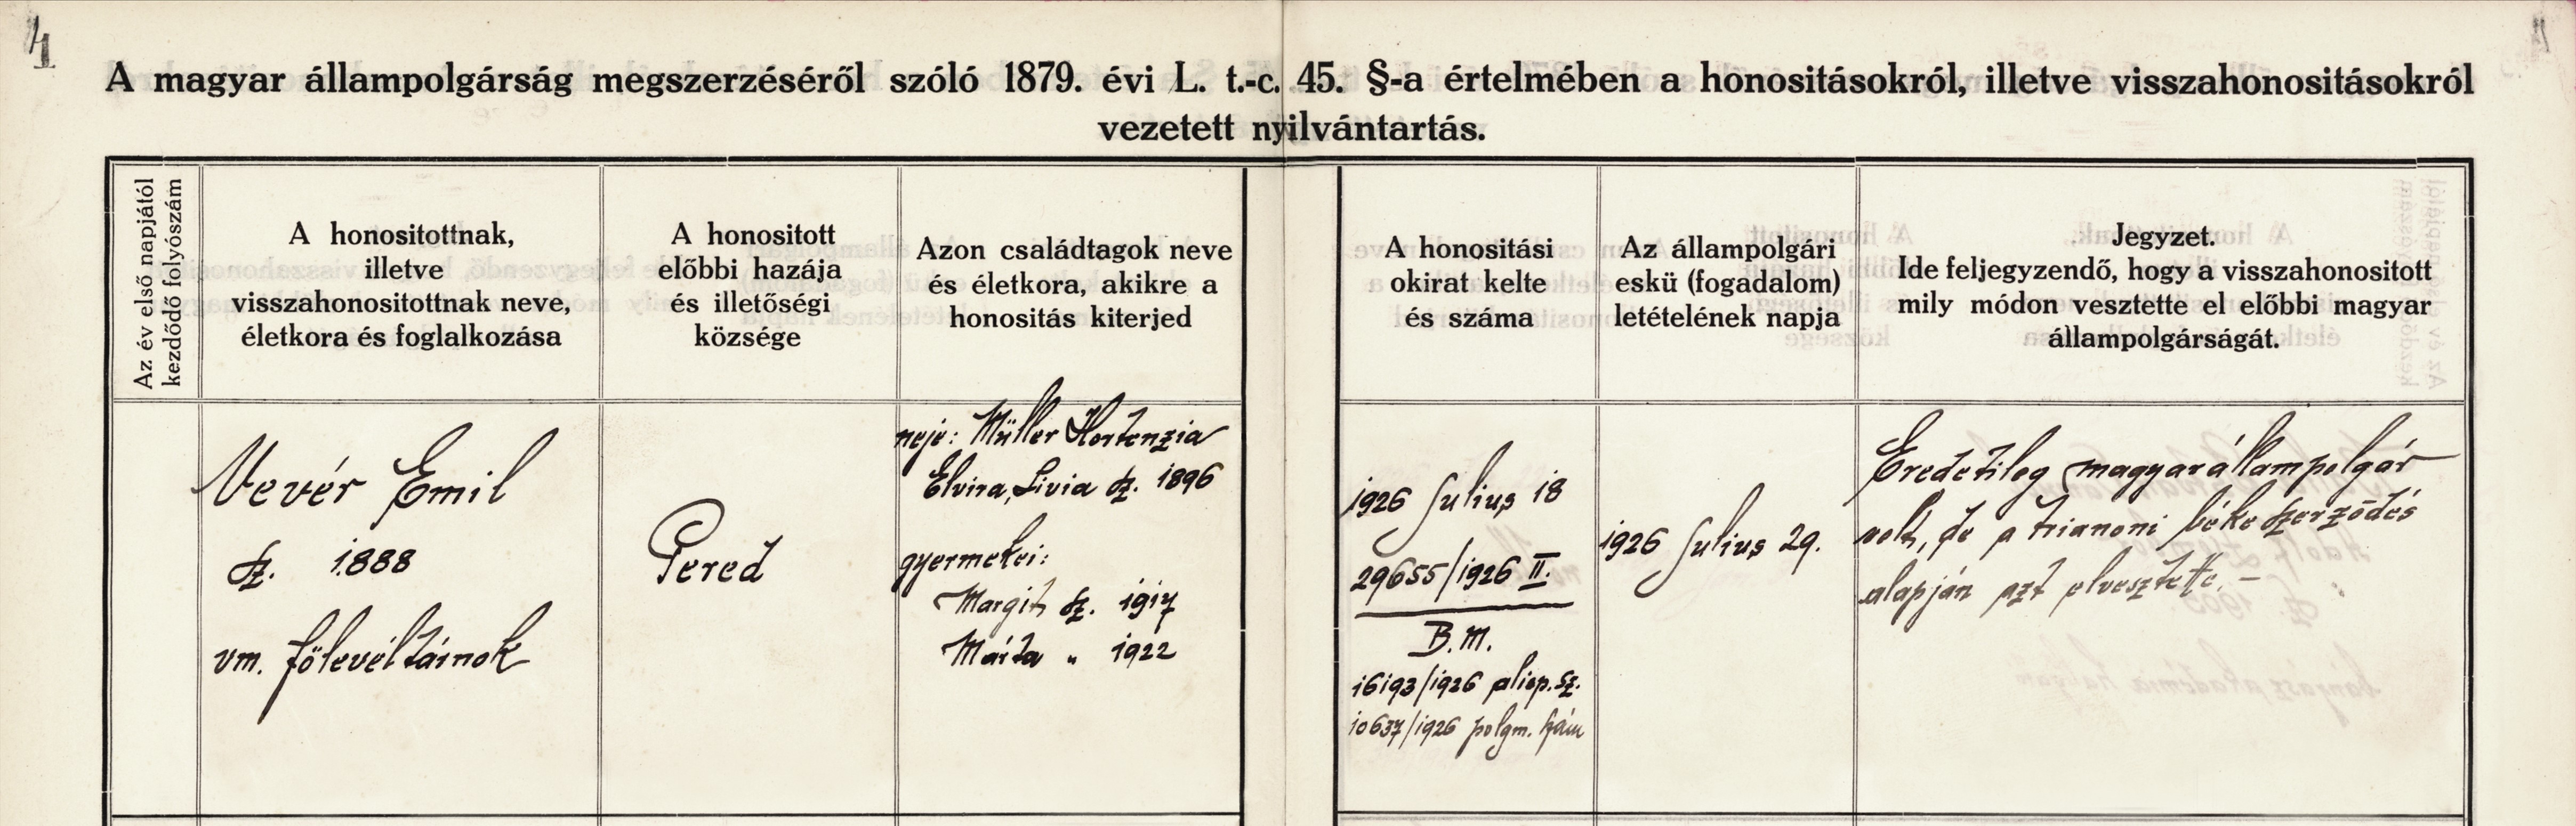 4
A magyar állampolgárság megszerzéséről szóló 1879. évi L. t.-c. 45. §-a értelmében a honositásokról, illetve visszahonositásokról
vezetett nyilvántartás.
Az év első napjától
kezdődő folyószám
A honositottnak,
illetve
visszahonositottnak neve,
életkora és foglalkozása
A honositott
előbbi hazája
és illetőségi
községe
Azon családtagok neve
és életkora, akikre a
honositás kiterjed
A honositási
okirat kelte
és száma
Az állampolgári
eskü (fogadalom)
letételének napja
Jegyzet.
Ide feljegyzendő, hogy a visszahonositott
mily módon vesztette el előbbi magyar
állampolgárságát.
Vevér Emil
sz. 1888
vm. főlevéltárnok
Pered
neje: Müller Hortenzia
Elvira, Livia sz. 1896
gyermekei:
Margit sz. 1917
Márta " 1922
1926 Julius 18
29655/1926 II.
B.M.
16193/1926 alisp. sz.
10637/1926 polgm. szám
1926 Julius 29.
Eredetileg magyar állampolgár
volt, de a trianoni béke szerződés
alapján azt elvesztette. –